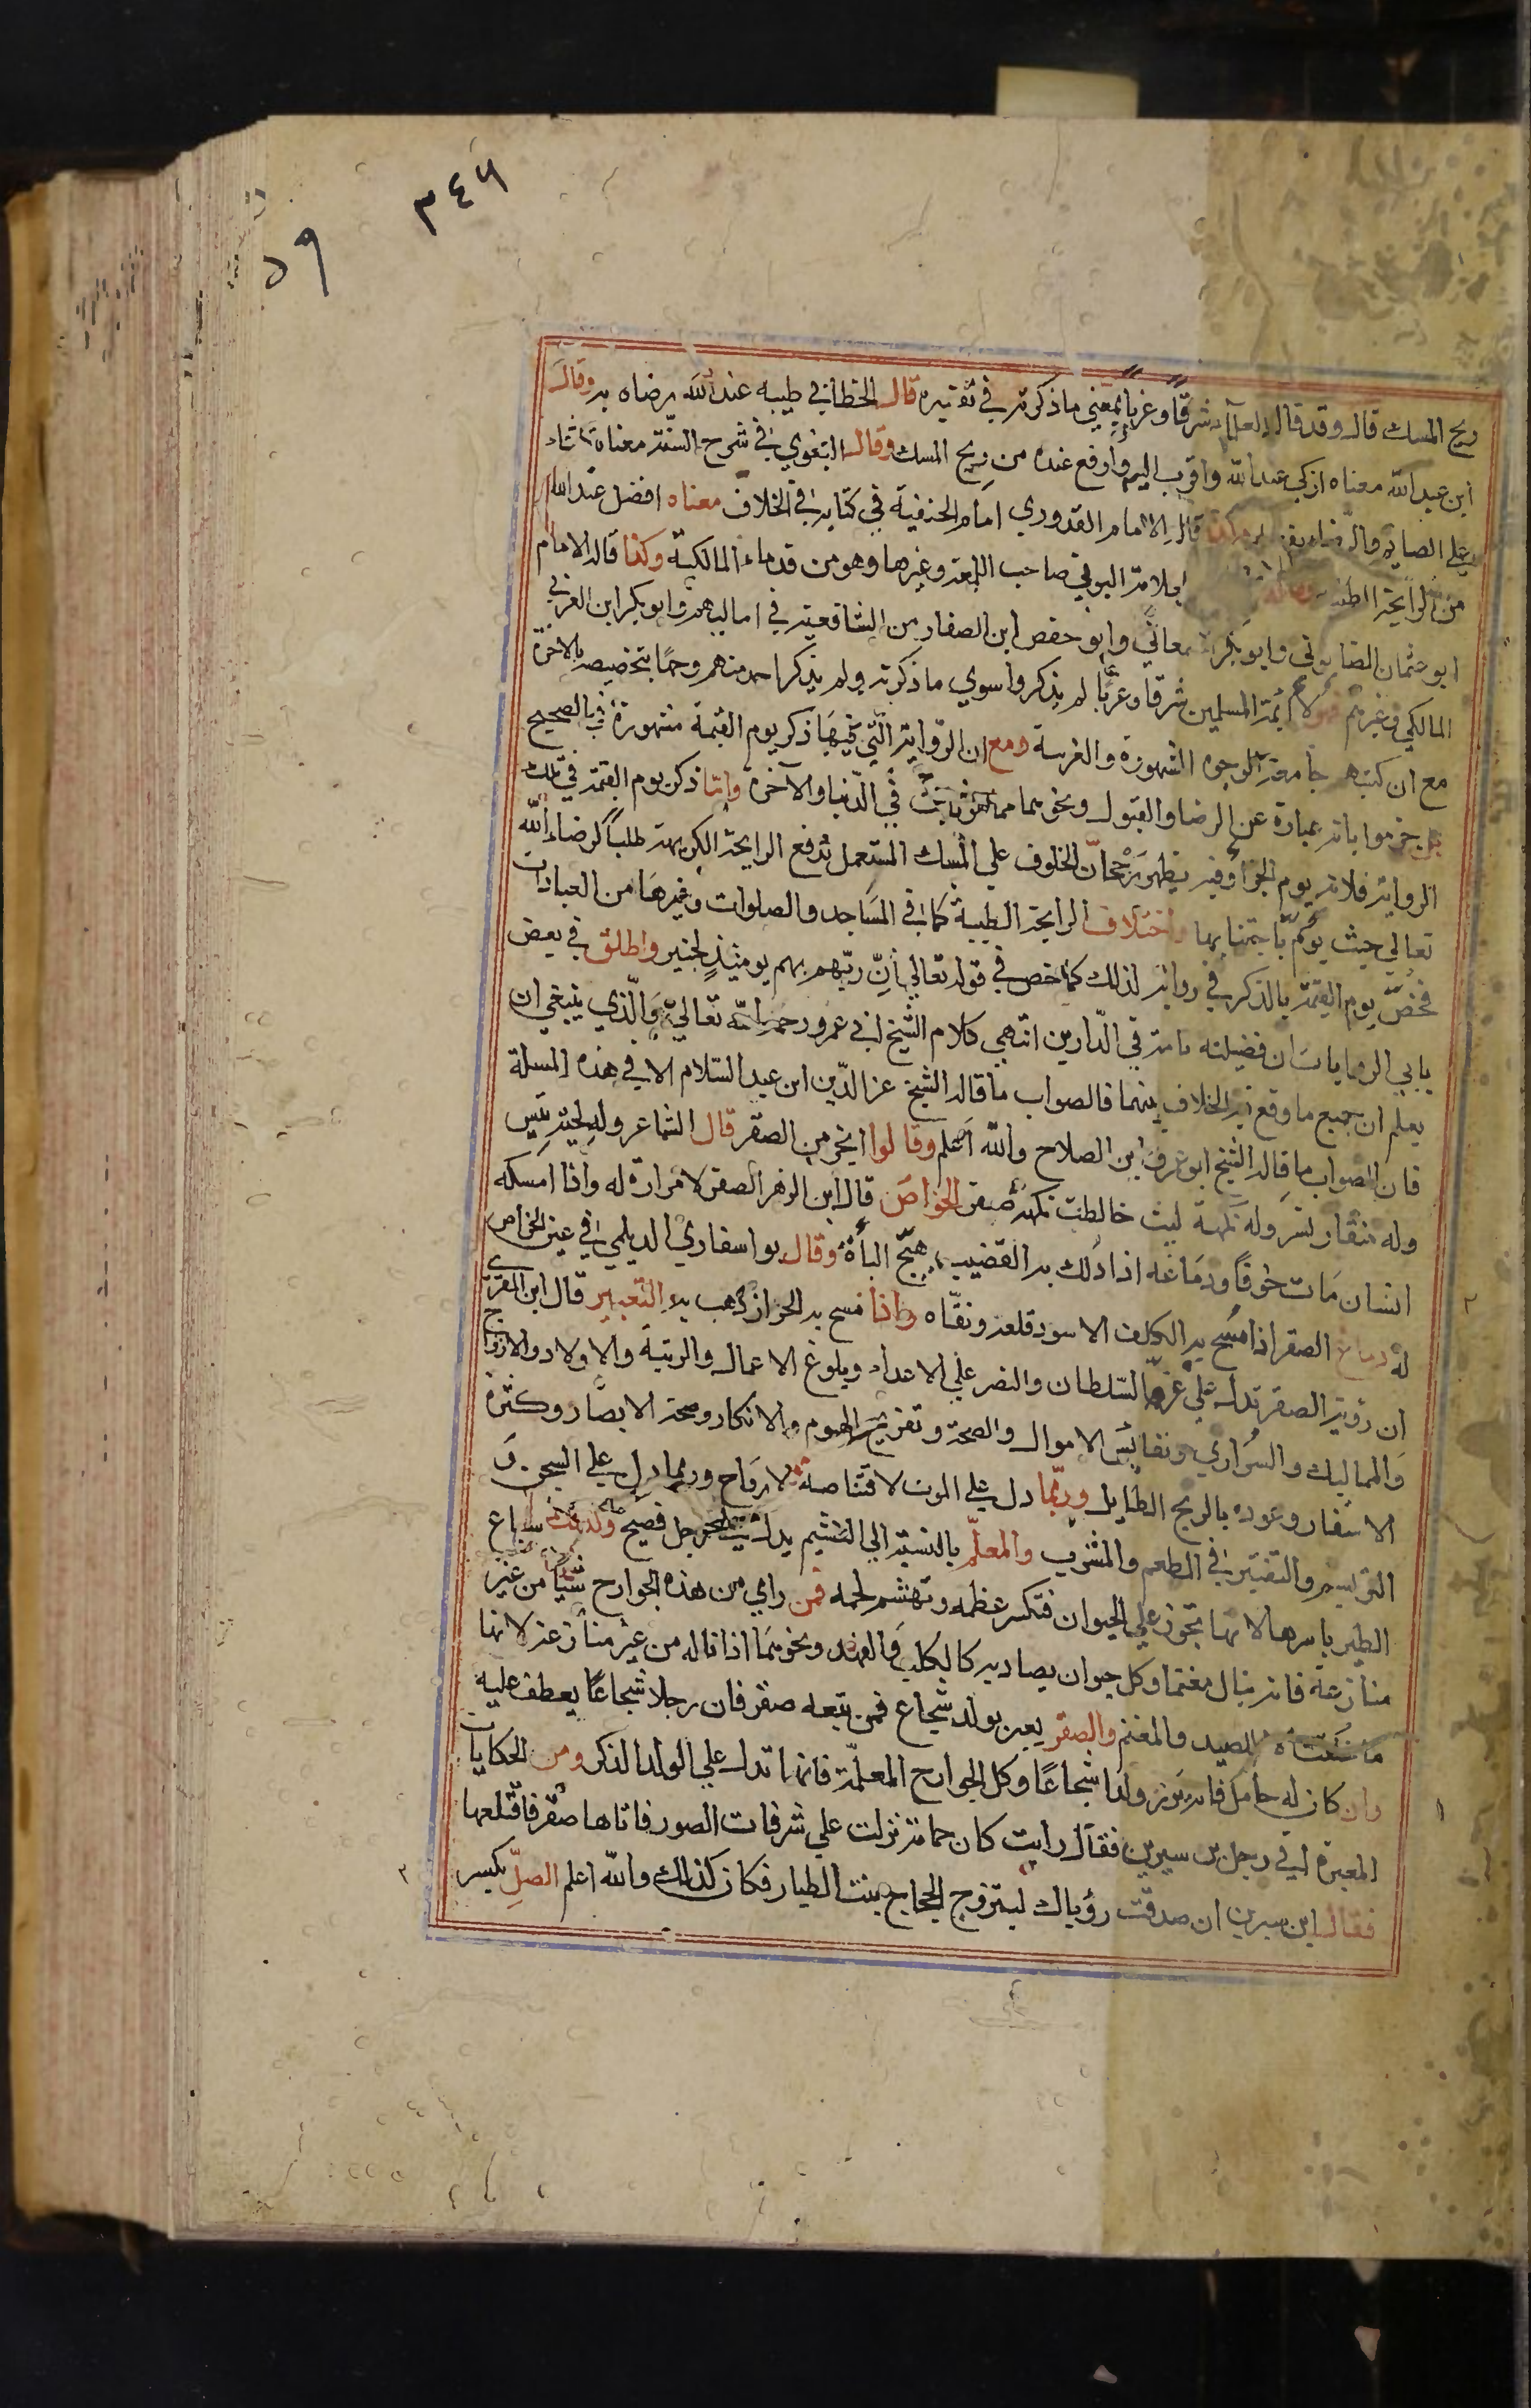 ٣٤٦
٥٩
ريح المسك قال وقد قال العلماء شرقا وغربا بمعني ما ذكرته في تفسيره قال الخطابي طيبه عند الله رضاه به وقال
ابن عبد الله معناه ازكى عند الله واقرب اليه وارفع عنده من ريح المسك وقال البغوي في شرح السنة معناه الثناء
علي الصائم والرضا بفعله وكذا قاله الامام القدوري امام الحنفية في كتابه في الخلاف معناه افضل عند الله
من الرايحة الطيبة البوني صاحب اللمعة وغيرها وهو من قدماء المالكية وكذا قاله الامام
ابو عثمان الصابوني وابو بكر السمعاني وابو حفص ابن الصفار من الشافعية في اماليهم وابو بكر ابن العربي
المالكي وغيرهم فهؤلاء ائمة المسلمين شرقا وغربا لم يذكروا سوي ما ذكرته ولم يذكر احد منهم وجها بتخصيصه بالاخرة
مع ان كتبهم جامعة للوجوه المشهورة والغريبة ومع ان الرواية التي فيها ذكر يوم القيمة مشهورة في الصحيح
بل جزموا بانه عبارة عن الرضا والقبول ونحوهما مما هو ثابت في الدنيا والآخرة واما ذكر يوم القيمة في تلك
الرواية فلانه يوم الجزا وفيه يظهر رجحان الخلوف علي المسك المستعمل لدفع الرايحة الكريهة طلبا لرضاء الله
تعالي حيث يؤمر باجتنابها واختلاف الرايحة الطيبة كما في المساجد والصلوات وغيرها من العبادات
فخص يوم القيمة بالذكر في رواية لذلك كما خص في قوله تعالي ان ربهم بهم يومئذ لخبير واطلق في بعض
باقي الروايات ان فضيلته ثابتة في الدارين انتهي كلام الشيخ ابي عمرو رحمه الله تعالي والذي ينبغي ان
يعلم ان جميع ما وقع فيه الخلاف بينهما فالصواب ما قاله الشيخ عز الدين ابن عبد السلام الا في هذه المسلة
فان الصواب ما قاله الشيخ ابو عمرو ابن الصلاح والله اعلم وقالوا ابخر من الصقر قال الشاعر وله لحية تيس
وله منقار نسر وله نكهة ليث خالطت نكهة صقر الخواص قال ابن الزهر الصقر لا مرارة له واذا امسكه
انسان مات خوفا ودماغه اذا دلك به القضيب هيج الباة وقال بو اسفاري الديلمي في عين الخواص
له دماغ الصقر اذا مسح به الكلف الاسود قلعه ونقاه واذا مسح به الحزاز ذهب به التعبير قال ابن المقري
ان رؤية الصقر تدل علي عز السلطان والنصر علي الاعداء وبلوغ الاعمال والرتبة والاولاد والازواج
والمماليك والسراري ونفائس الاموال والصحة وتفريج الهموم والانكار وصحة الابصار وكثرة
الاسفار وعوده بالربح الطايل وربما دل علي الموت لاقتناصة الارواح وربما دل علي السجن و
الترسيم والتقتير في الطعم والمشرب والمعلم بالنسبة الي الغشيم يدل علي رجل فصيح وكذلك سباع
الطير باسرها لانها تجوز علي الحيوان فتكسر عظمه وتهشم لحمه فمن راي من هذه الجوارح شيا من غير
منازعة فانه ينال مغنما وكل حيوان يصاد به كالكلب والفهد ونحوهما اذا ناله من غير منازعة لانها
للصيد والمغنم والصقر يعبر بولد شجاع فمن تبعه صقر فان رجلا شجاعا يعطف عليه
وان كان له حامل فانه يرزق ولدا شجاعا وكل الجوارح المعلمة فانها تدل علي الولد الذكر ومن الحكايات
المعبرة اتي رجل بن سيرين فقال رايت كان حمامة نزلت علي شرفات الصور فاتاها صقر فاقتلعها
فقال ابن سيرين ان صدقت رؤياك ليتزوج الحجاج بنت الطيار فكان كذلك والله اعلم الصل بكسر